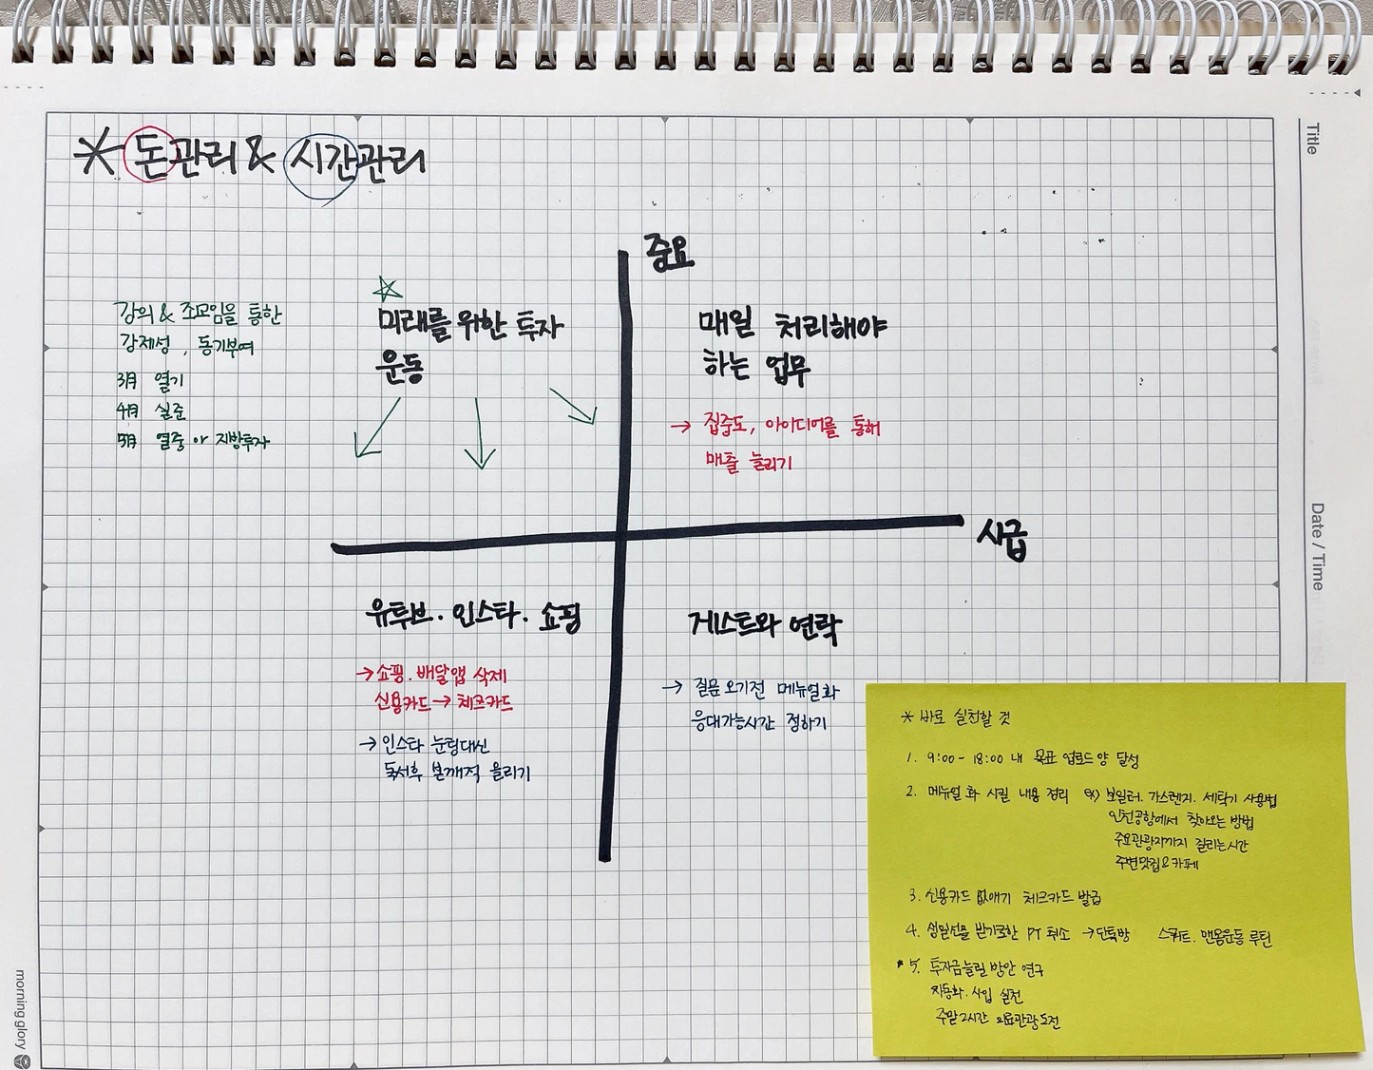 * 돈관리 & 시간관리
중요
강의 & 조교임을 통한
강제성, 동기부여
3月 열기
4月 실준
5月 열중 or 지방투자
미래를 위한 투자
운동
매일 처리해야
하는 업무
→ 집중도, 아이디어를 통해
매출 늘리기
시급
유투브. 인스타. 쇼핑
→ 쇼핑. 배달앱 삭제
신용카드 → 체크카드
→ 인스타 눈팅대신
독서후 본깨적 올리기
게스트와 연락
→ 질문 오기전 메뉴얼화
응대가능시간 정하기
* 바로 실천할 것
1. 9:00 - 18:00 내 목표 업로드 양 달성
2. 메뉴얼 화 시킬 내용 정리 ex) 보일러. 가스렌지. 세탁기 사용법
인천공항에서 찾아오는 방법
주요관광지까지 걸리는시간
주변맛집 & 카페
3. 신용카드 없애기 체크카드 발급
4. 생일선물 받기로한 PT 취소 → 단톡방 스쿼트. 맨몸운동 루틴
* 5. 투자금 늘릴 방안 연구
자동화. 사입 실천
주말 2시간 의료관광 도전
Title
Date / Time
morning glory